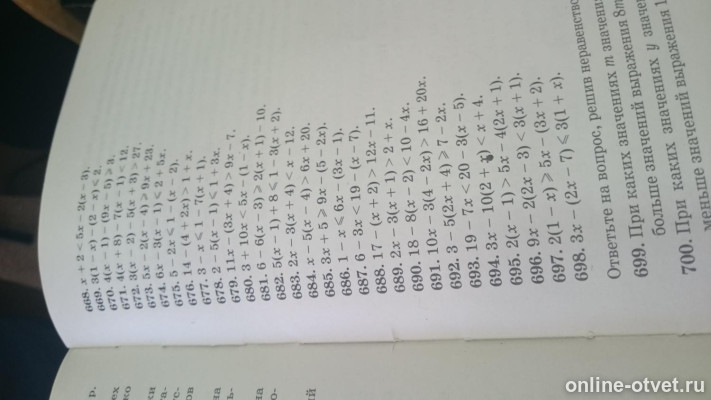 668. x + 2 < 5x − 2(x − 3).
669. 3(1 − x) − (2 − x) ⩽ 2.
670. 4(x − 1) − (9x − 5) ⩾ 3.
671. 4(x + 8) − 7(x − 1) < 12.
672. 3(x − 2) − 5(x + 3) > 27.
673. 5x − 2(x − 4) ⩾ 9x + 23.
674. 6x − 3(x − 1) ⩽ 2 + 5x.
675. 5 − 2x ⩽ 1 − (x − 2).
676. 14 − (4 + 2x) > 1 + x.
677. 3 − x ⩽ 1 − 7(x + 1).
678. 2 − 5(x − 1) ⩽ 1 + 3x.
679. 11x − (3x + 4) > 9x − 7.
680. 3 + 10x < 5x − (1 − x).
681. 6 − 6(x − 3) ⩾ 2(x + 1) − 10.
682. 5(x − 1) + 8 ⩽ 1 − 3(x + 2).
683. 2x − 3(x + 4) < x − 12.
684. x − 5(x − 4) > 6x + 20.
685. 3x + 5 ⩾ 9x − (5 − 2x).
686. 1 − x ⩽ 6x − (3x − 1).
687. 6 − 3x < 19 − (x − 7).
688. 17 − (x + 2) > 12x − 11.
689. 2x − 3(x + 1) > 2 − x.
690. 18 − 8(x − 2) < 10 − 4x.
691. 10x − 3(4 − 2x) > 16 + 20x.
692. 3 − 5(2x + 4) ⩾ 7 − 2x.
693. 19 − 7x < 20 − 3(x − 5).
694. 3x − 10(2 + x) < x + 4.
695. 2(x − 1) > 5x − 4(2x + 1).
696. 9x − 2(2x − 3) < 3(x + 1).
697. 2(1 − x) ⩾ 5x − (3x + 2).
698. 3x − (2x − 7) ⩽ 3(1 + x).
Ответьте на вопрос, решив неравенство
699. При каких значениях m значения
больше значений выражения 8m
700. При каких значениях y значен
меньше значений выражения 1
р.
ех
ко
ки
та-
тс-
ов
на
ь-
на
о-
ий
online-otvet.ru